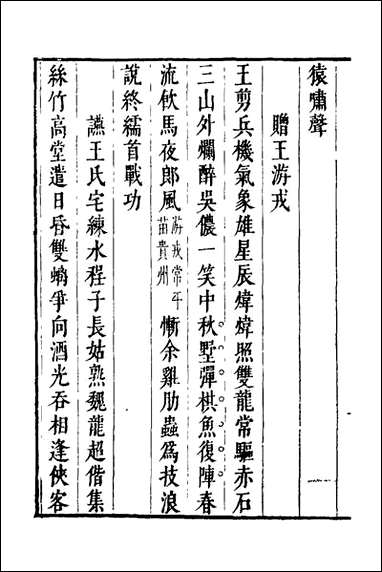 猿嘯聲
贈王游戎
王剪兵機氣象雄星辰煒煒照雙龍常驅赤石
三山外爛醉吳儂一笑中秋墅彈棋魚復陣春
流飲馬夜郎風游戎常平苗貴州慚余雞肋蟲為技浪
說終繻首戰功
讌王氏宅練水程子長姑熟魏龍超偕集
絲竹高堂遣日昏雙螭爭向酒光吞相逢俠客
一